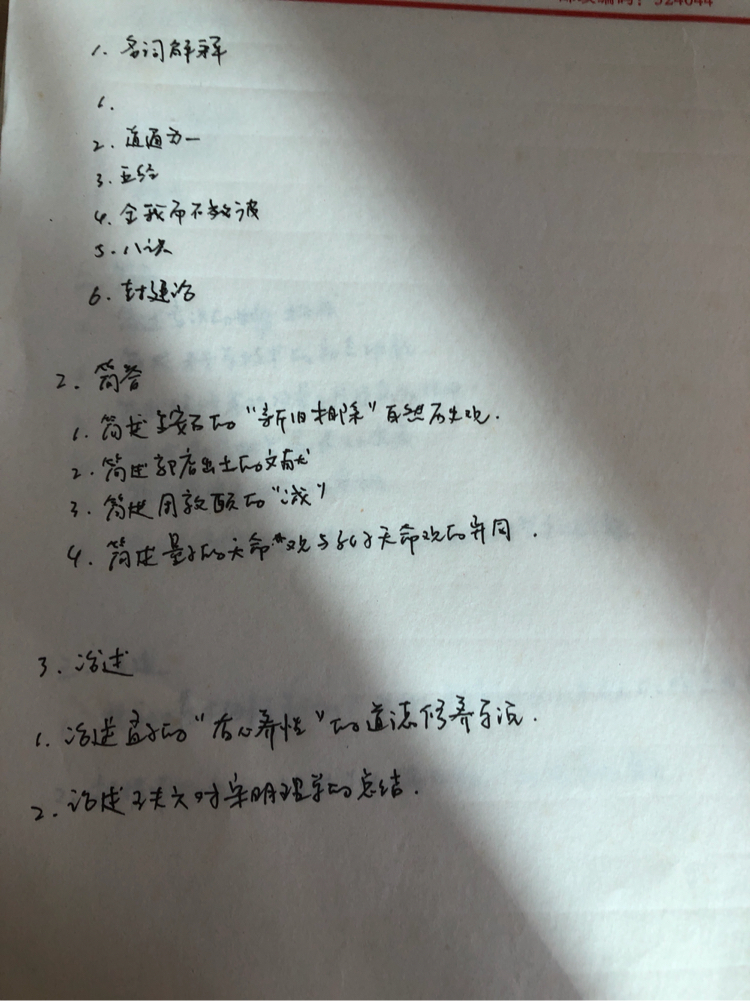 邮政编码：524044
1. 名词解释
1.
2. 道通为一
3. 五经
4. 全我而不教彼
5. 八识
6. 封建论
2. 简答
1. 简述王安石的“新旧相除”自然历史观.
2. 简述郭店出土的文献
3. 简述周敦颐的“诚”
4. 简述墨子的天命观与孔子天命观的异同.
3. 论述
1. 论述孟子的“存心养性”的道德修养方法.
2. 论述王夫之对宋明理学的总结.